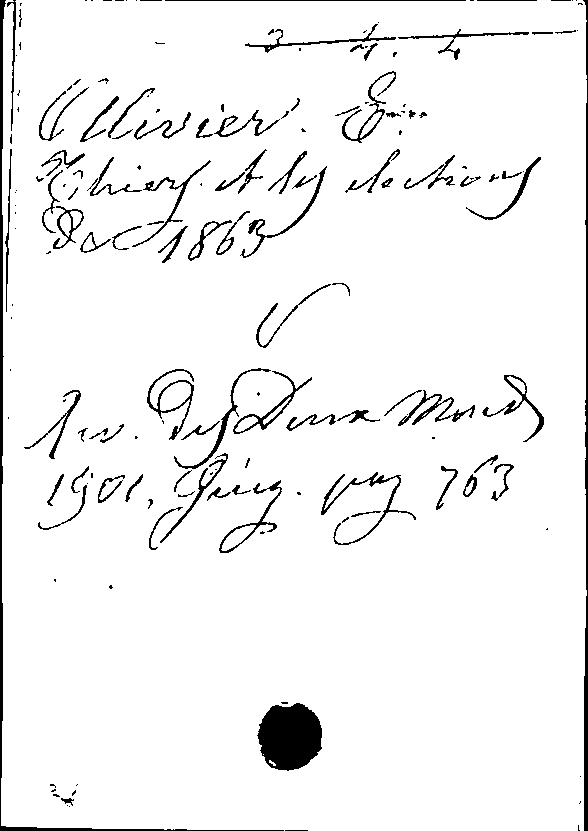 3. 4. 4
Ollivier. E.
Thiers et les elections
De 1863
Rev. Des Deux Mondes
1901, pag 763